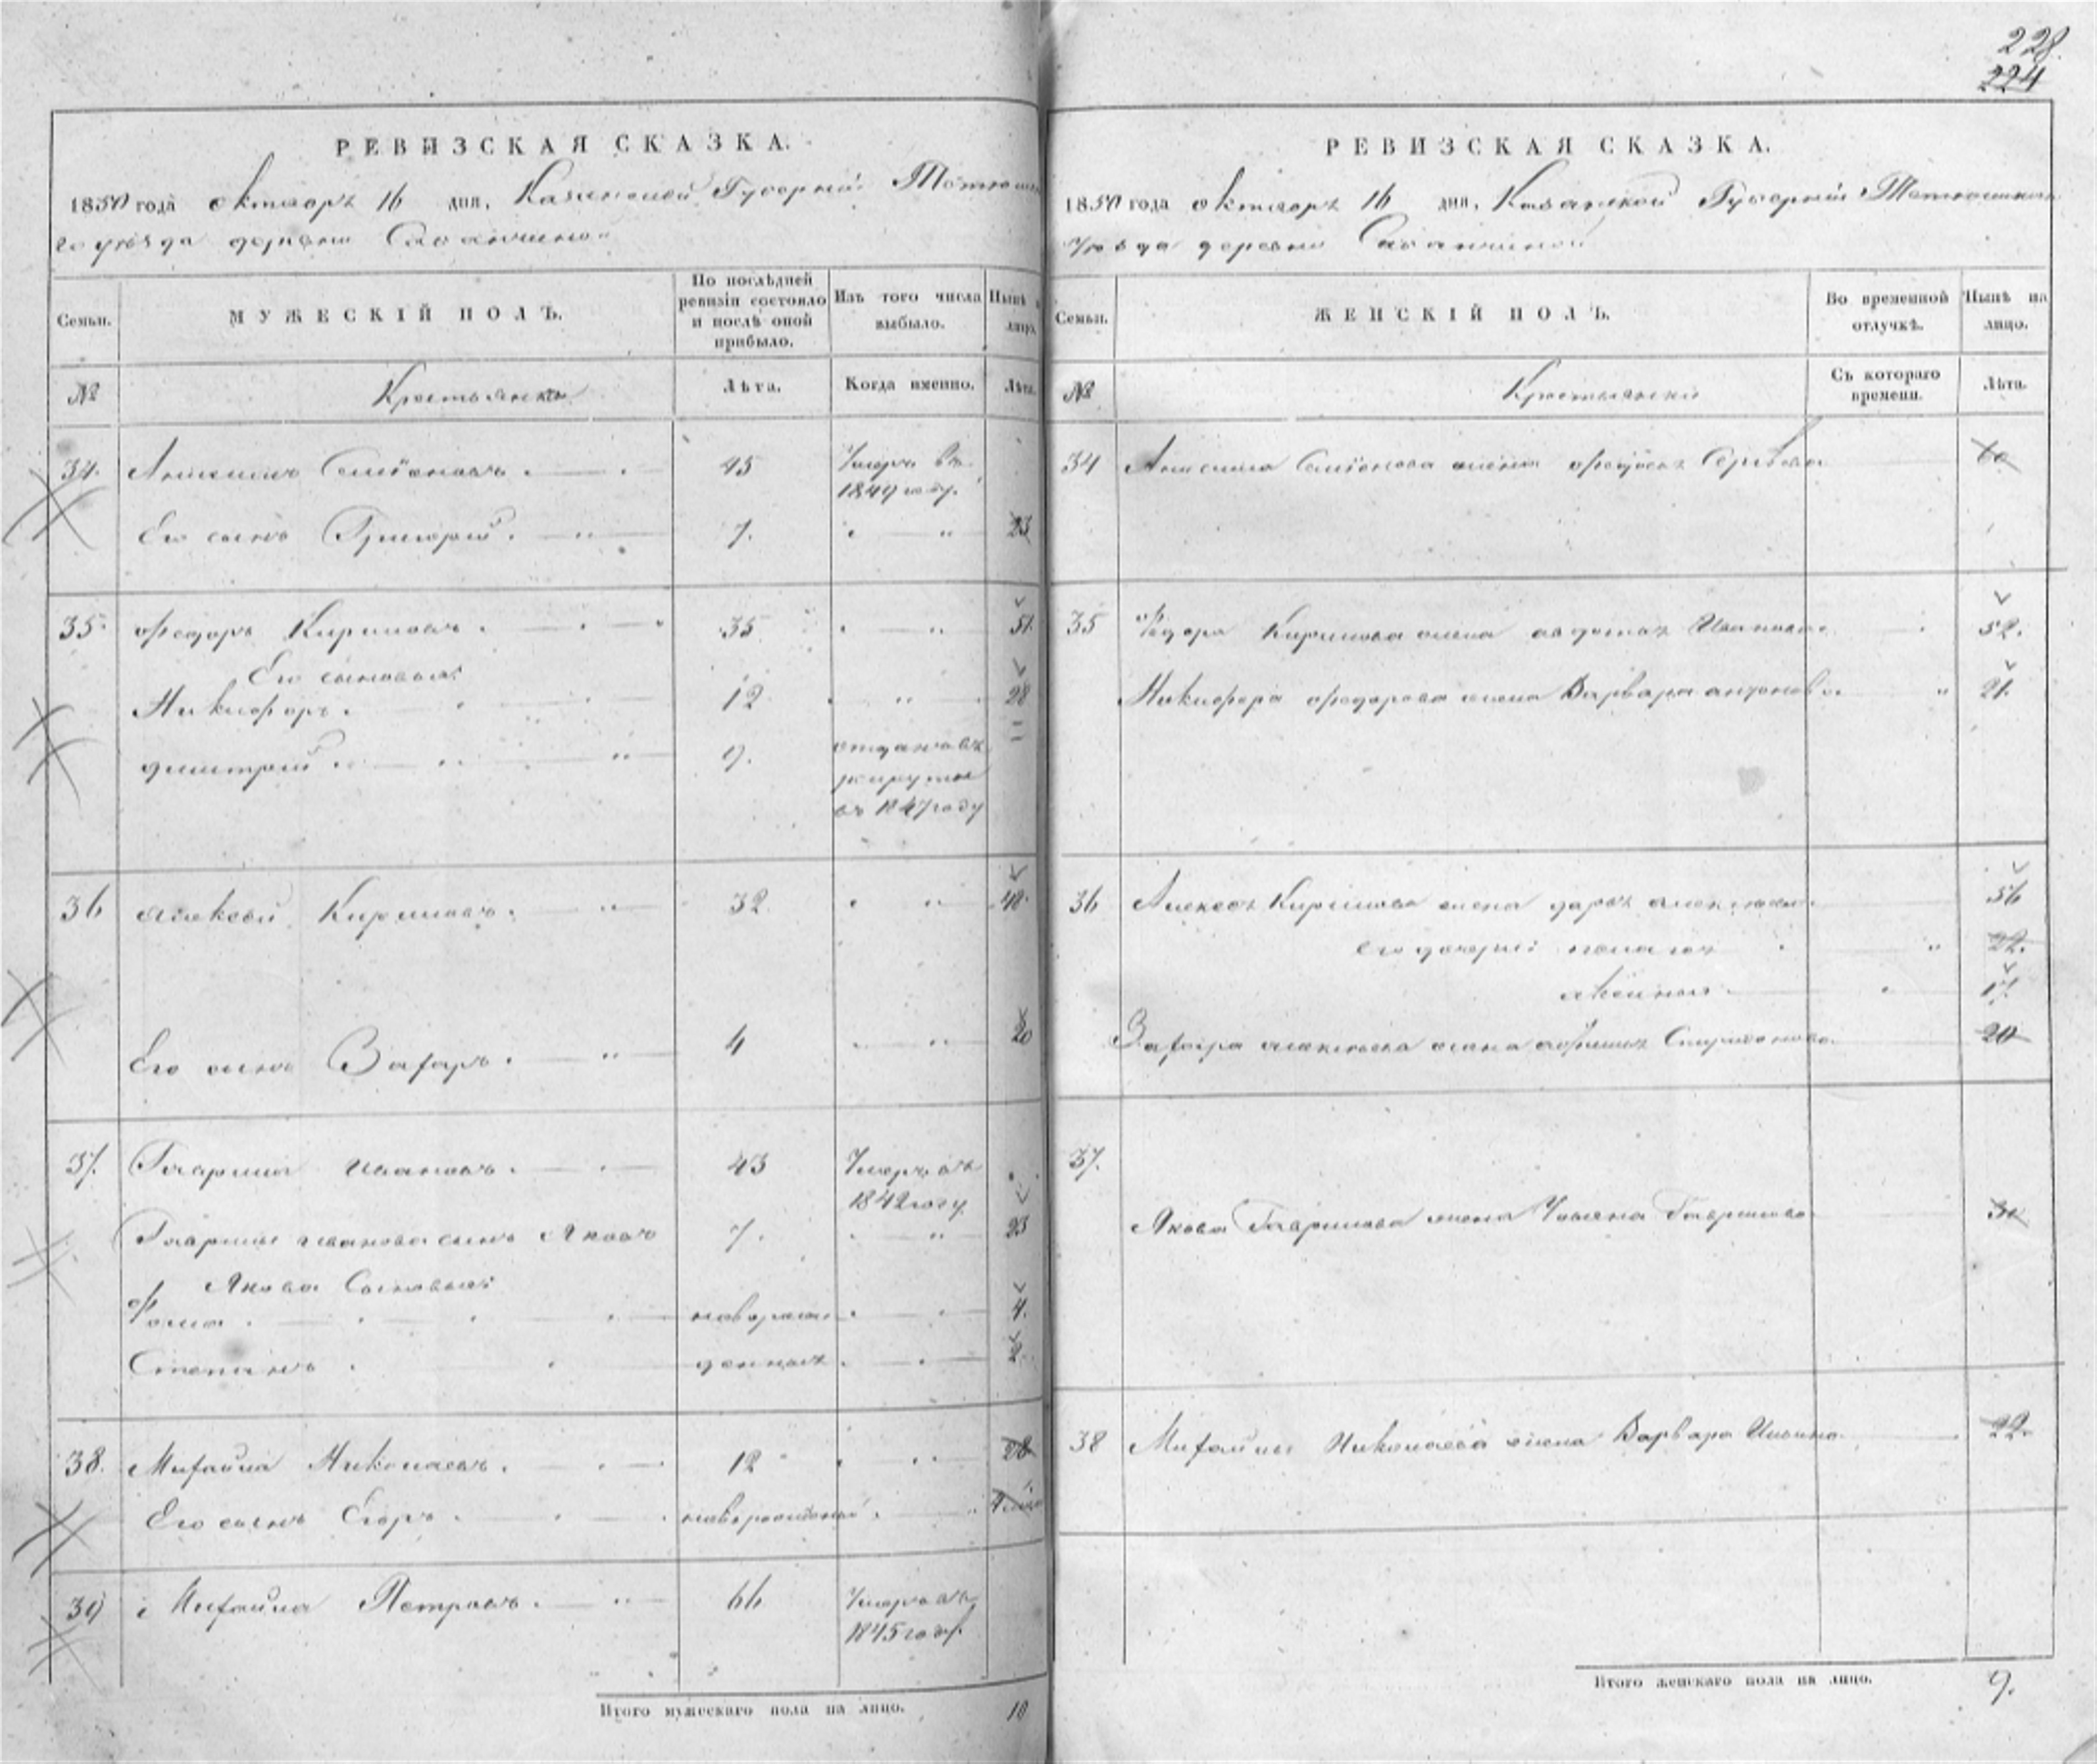 228.
224
РЕВИЗСКАЯ СКАЗКА.
1850 года октября 16 дня, Казанской Губернии Тетюшска
го уезда деревни Саванчиной
Семьи.
МУЖЕСКІЙ ПОЛЪ.
По послѣдней ревизіи состояло и послѣ оной прибыло.
Изъ того числа выбыло.
Нынѣ на лицо.
№
Крестьянѣ
Лѣта.
Когда именно.
Лѣта.
34. Семёновъ 45 Умеръ въ
1849 году.
Его сынъ Григорій 7. 23
35. Федоръ Кириловъ 35 51.
Его сыновья:
Никифоръ 12 28
Дмитрій 9. отданъ въ
рекруты
въ 1847 году
36 Алексей Кириловъ 32 48.
Его сынъ Захаръ 4 20
37. Гаврила Ивановъ 43 Умеръ въ
1842 году
Гаврилы Иванова сынъ Яковъ 7. 23
Якова Сыновья:
Фома новорож 4.
Степанъ денныя 2.
38. Михайла Николаевъ 12 28
Его сынъ Егоръ новорожденый
39 Михайла Петровъ 66 Умеръ въ
1845 году.
Итого мужескаго пола на лицо. 10
РЕВИЗСКАЯ СКАЗКА.
1850 года октября 16 дня, Казанской Губерніи Тетюшскаго
уезда деревни Саванчиной
Семьи.
ЖЕНСКІЙ ПОЛЪ.
Во временной отлучкѣ.
Нынѣ на лицо.
№
Крестьянки
Съ котораго времени.
Лѣта.
34 Семёнова жена Сергѣева 60
35 Федора Кирилова жена авдотья Иванова 52.
Никифора федорова жена Варвара антонова 21.
36 Алексея Кирилова жена дарья алексеева 56
его дочери: пелагея 22.
17.
Захара алексеева жена Спиридонова 20
37.
Якова Гаврилова жена Ульяна Гаврилова
38 Михайлы Николаева жена Варвара Ильина 22.
Итого женскаго пола на лицо. 9.